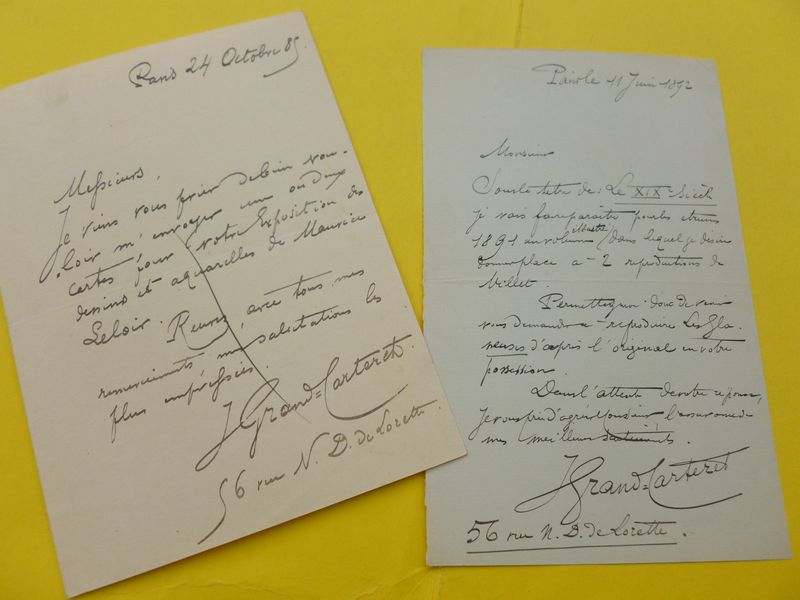 Paris 24 Octobre 85
Messieurs,
Je viens vous prier de bien vou-
loir m'envoyer une ou deux
cartes pour votre Exposition des
dessins et aquarelles de Maurice
Leloir. Recevez, avec tous mes
remerciements, mes salutations les
plus empressées.
J Grand=Carteret
56 rue N. D. de Lorette.
Paris le 11 Juin 1892
Monsieur
Sous le titre de: Le XIXe Siècle
je vais faire paraître pour les étrennes
1891 un volume illustré dans lequel je désire
donner place a 2 reproductions de
Millet
Permettez moi donc de venir
vous demander a reproduire Les Gla-
neuses d'après l'original en votre
possession.
Dans l'attente de votre réponse,
Je vous prie d'agréer Monsieur l'assurance de
mes meilleurs sentiments.
J Grand=Carteret
56 rue N. D. de Lorette.